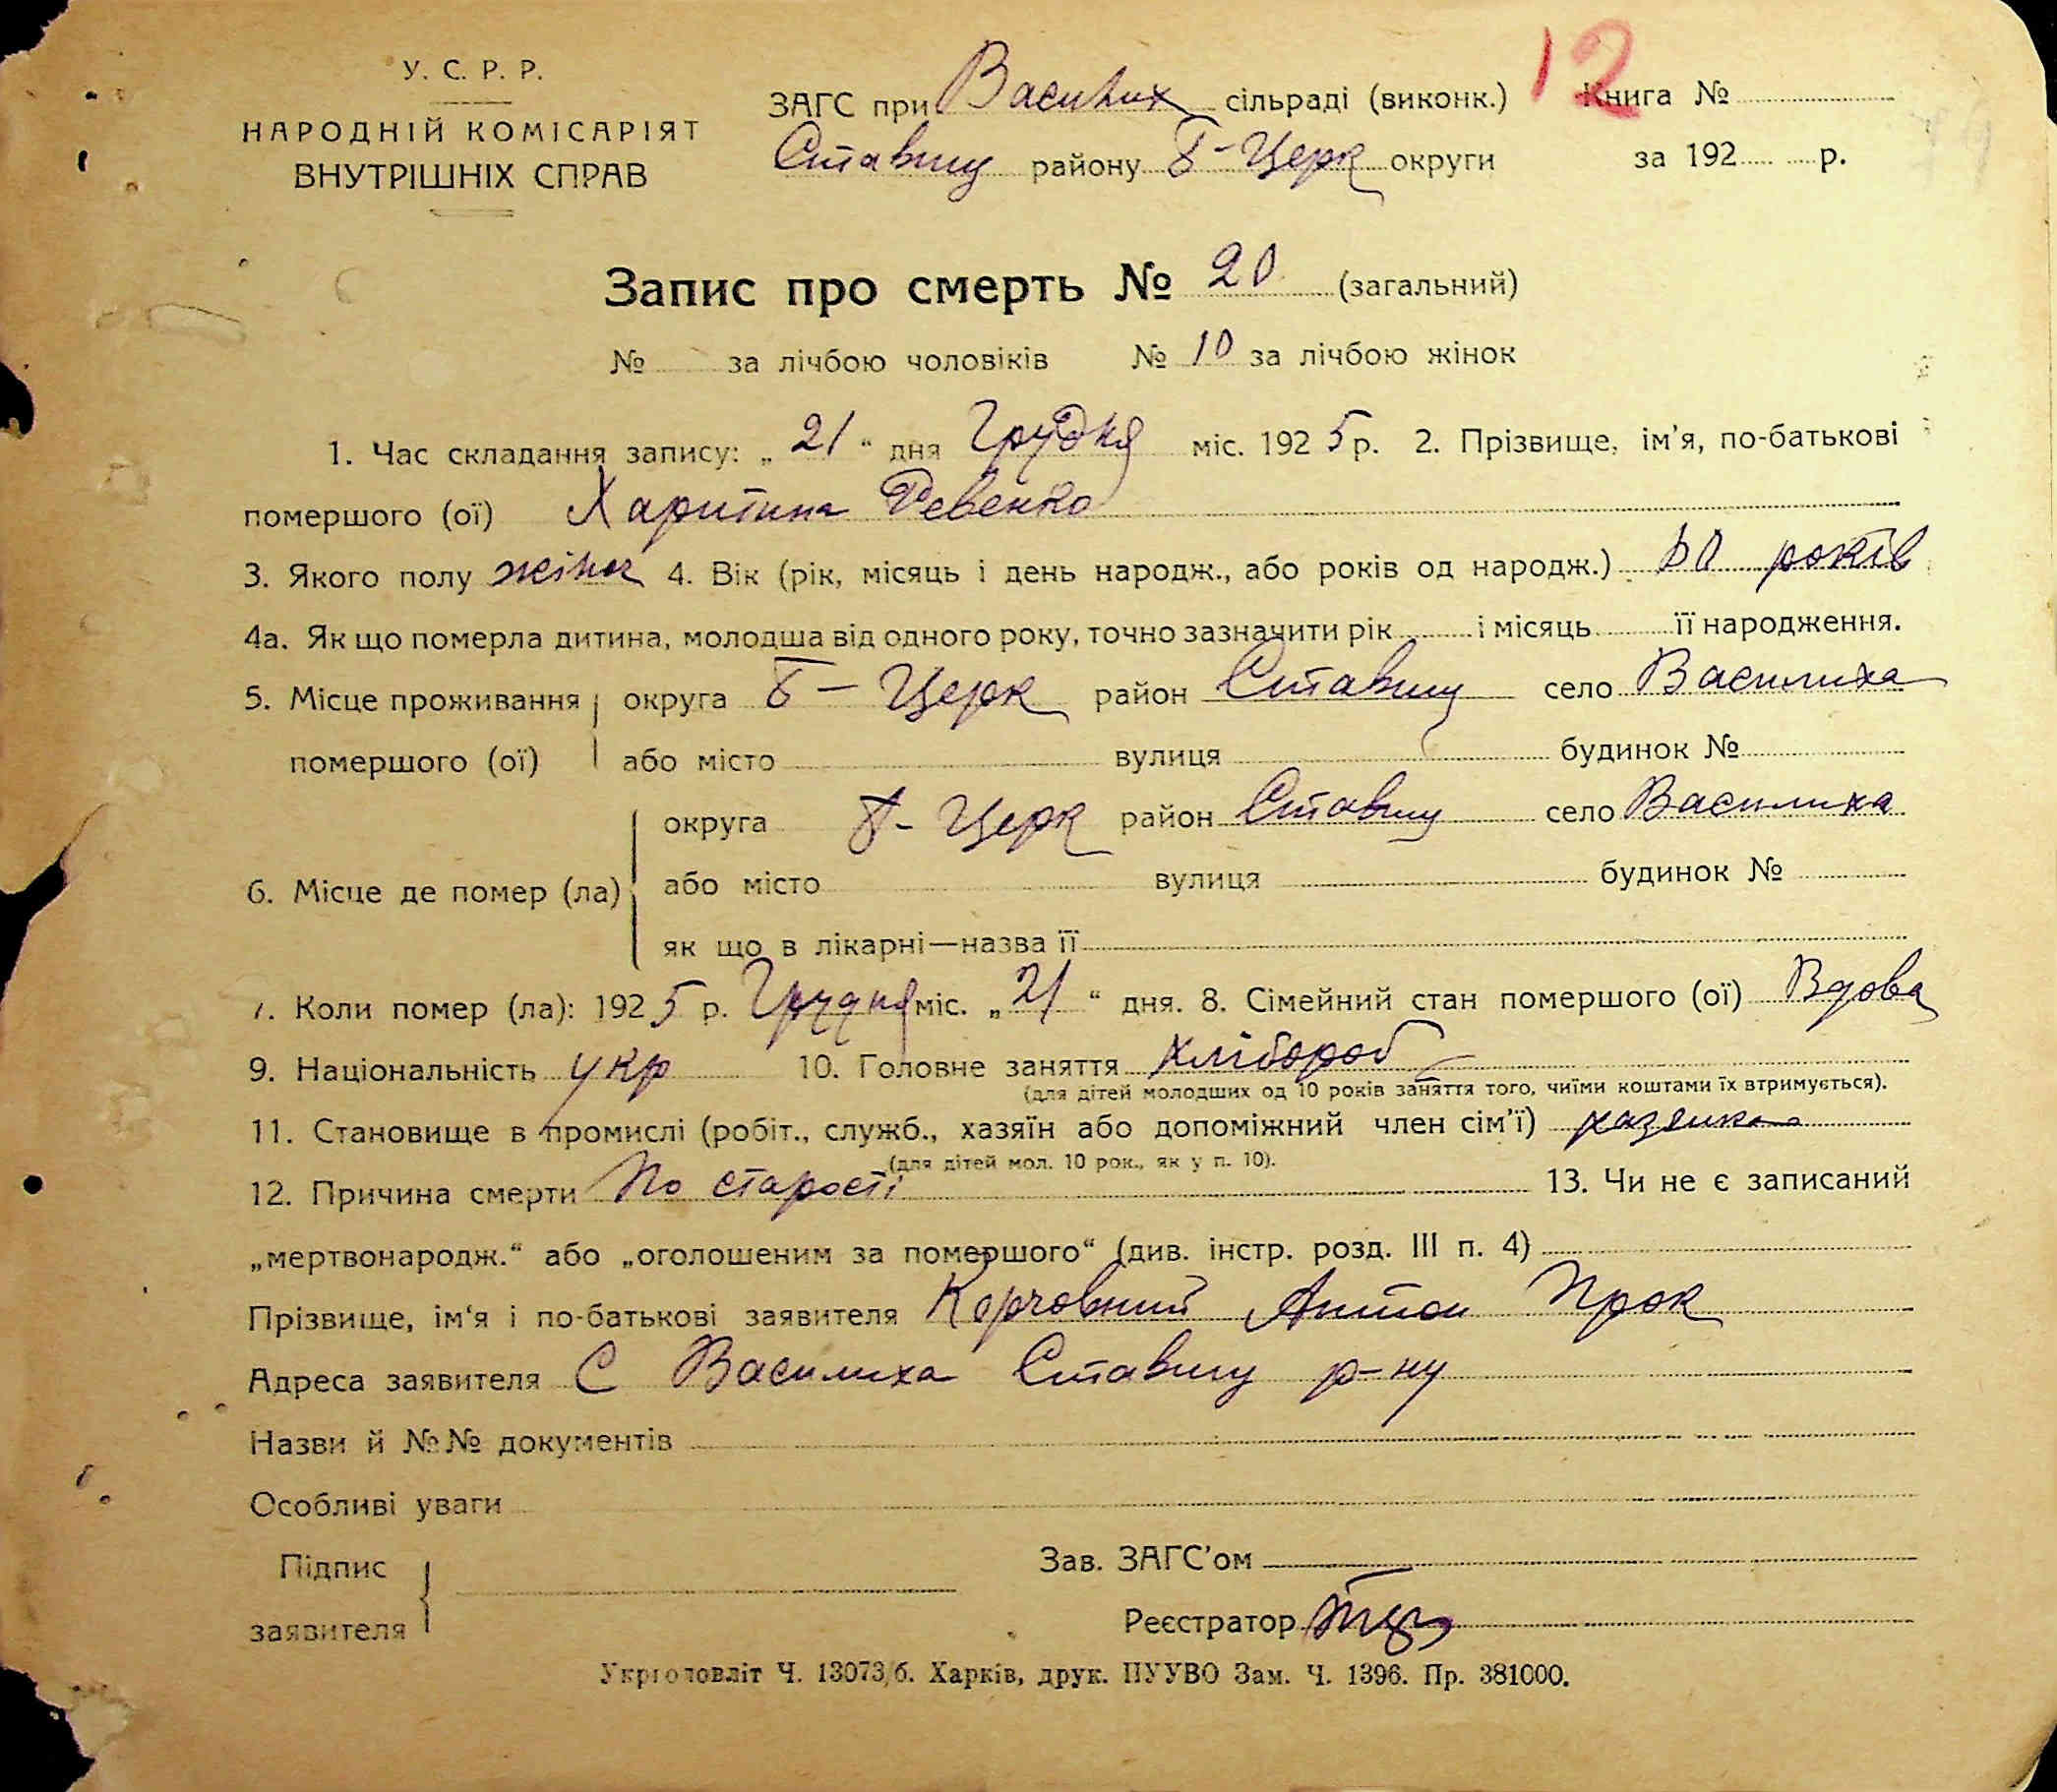 У. С. Р. Р.
НАРОДНІЙ КОМІСАРІЯТ
ВНУТРІШНІХ СПРАВ
ЗАГС при Василих сільраді (виконк.) 12 Книга №
Ставищ району Б-Церк округи за 192 р.
Запис про смерть № 20 (загальний)
№ за лічбою чоловіків № 10 за лічбою жінок
1. Час складання запису: „ 21 “ дня Грудня міс. 1925 р. 2. Прізвище, ім’я, по-батькові
помершого (ої) Харитина Ревенко
3. Якого полу жіноч 4. Вік (рік, місяць і день народж., або років од народж.) років
4а. Як що померла дитина, молодша від одного року, точно зазначити рік і місяць її народження.
5. Місце проживання округа Б - Церк район Ставищ село Василиха
помершого (ої) або місто вулиця будинок №
округа Б - Церк район Ставищ село Василиха
6. Місце де помер (ла) або місто вулиця будинок №
як що в лікарні—назва її
7. Коли помер (ла): 1925 р. Грудня міс. „ 21 “ дня. 8. Сімейний стан помершого (ої) Вдова
9. Національність укр 10. Головне заняття хлібороб
(для дітей молодших од 10 років заняття того, чиїми коштами їх втримується).
11. Становище в промислі (робіт., служб., хазяїн або допоміжний член сім’ї) хазяйка
(для дітей мол. 10 рок., як у п. 10).
12. Причина смерти По старості 13. Чи не є записаний
„мертвонародж.“ або „оголошеним за помершого“ (див. інстр. розд. III п. 4)
Прізвище, ім‘я і по-батькові заявителя Корчовний Антон Прок
Адреса заявителя С Василиха Ставищ р-ну
Назви й №№ документів
Особливі уваги
Підпис
заявителя
Зав. ЗАГС’ом
Реєстратор
Укрголовліт Ч. 13073/б. Харків, друк. ПУУВО Зам. Ч. 1396. Пр. 381000.